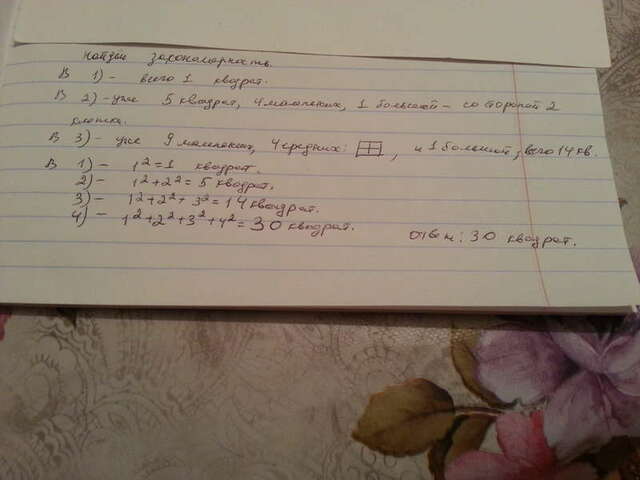 найдём закономерность.
В 1) - всего 1 квадрат.
В 2) - уже 5 квадрат, 4 маленьких, 1 большой - со стороной 2
клетки.
В 3) - уже 9 маленьких, 4 средних: , и 1 большой, всего 14 кв.
В 1) - 1² = 1 квадрат.
2) - 1² + 2² = 5 квадрат.
3) - 1² + 2² + 3² = 14 квадрат.
4) - 1² + 2² + 3² + 4² = 30 квадрат.
ответ: 30 квадрат.